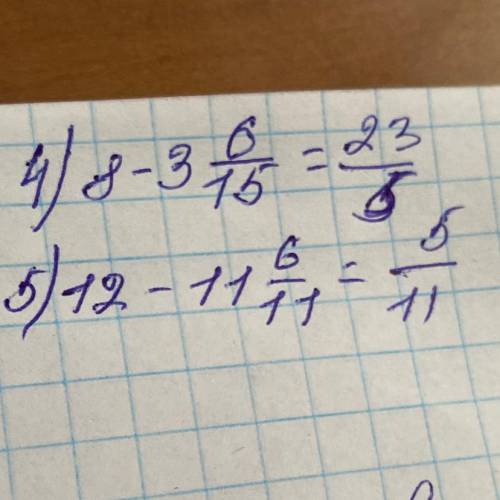 4) 8 - 3 6/15 = 23/5
5) 12 - 11 6/11 = 5/11